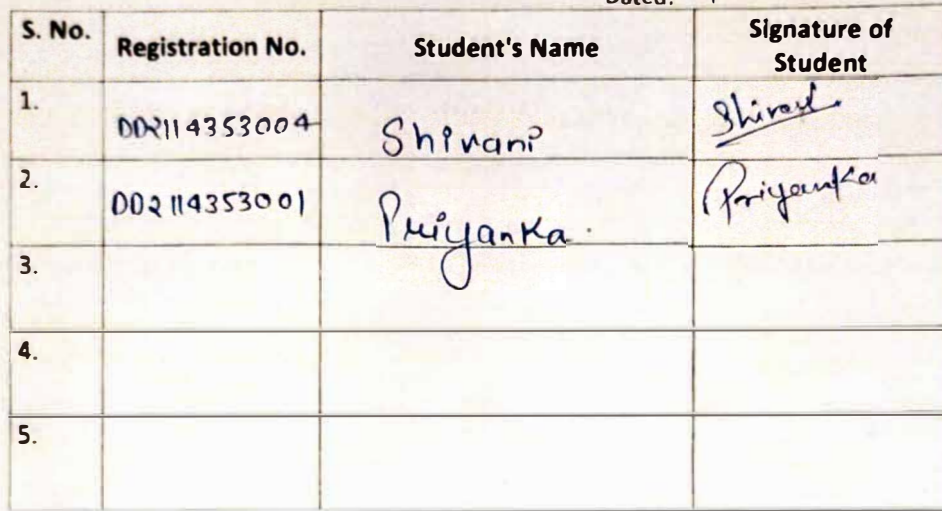 Dated:
S. No. Registration No. Student's Name Signature of Student
1. 002114353004 Shivani Shivani
2. 002114353001 Priyanka. Priyanka
3.
4.
5.